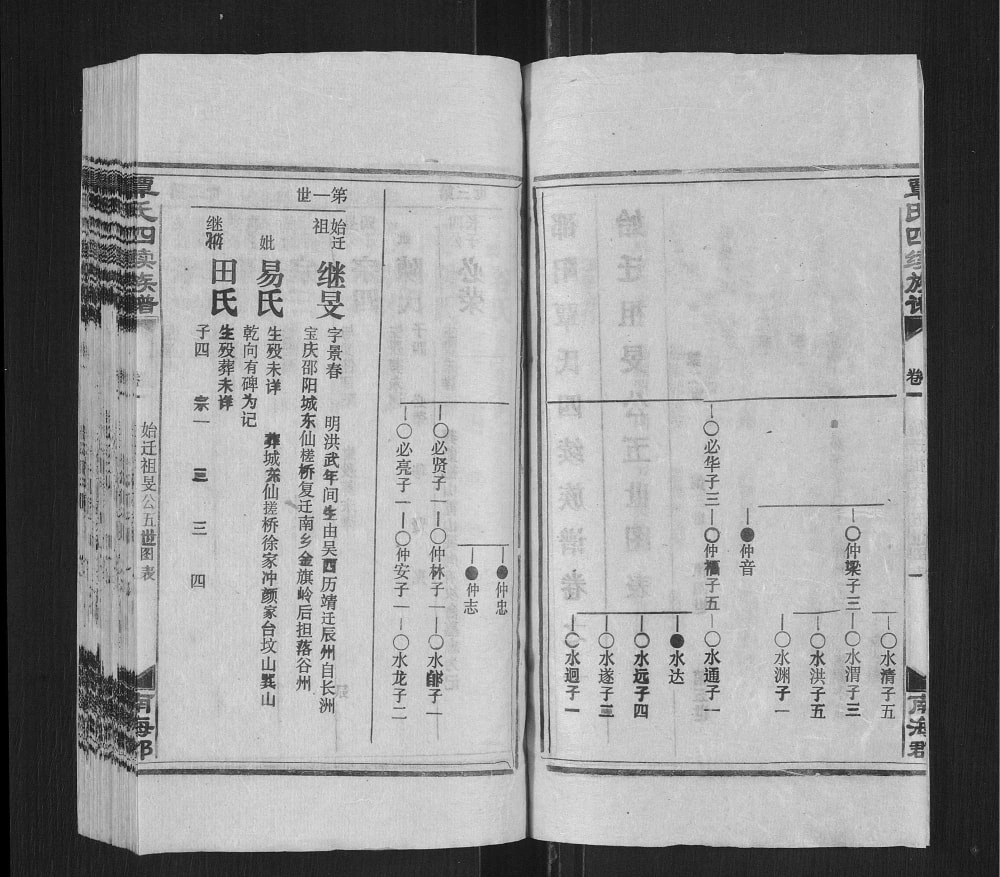 覃氏四续族谱
卷一
南海郡
水清子五
仲梁子三
水渭子三
水洪子五
水渊子一
仲音
必华子三
仲福子五
水通子一
水达
水远子四
水遂子三
水迥子一
仲忠
仲志
必贤子一
仲林子一
水部子一
必亮子一
仲安子一
水龙子二
第一世
始迁祖
继旻
字景春
明洪武年间生由吴西历靖迁辰州自长洲
宝庆邵阳城东仙槎桥复迁南乡金旗岭后担落谷州
妣
易氏
生殁未详
葬城东仙搓桥徐家冲颜家台坟山巽山
乾向有碑为记
继
田氏
生殁葬未详
子四
宗一
三
三
四
覃氏四续族谱
始迁祖旻公五世图表
南海郡